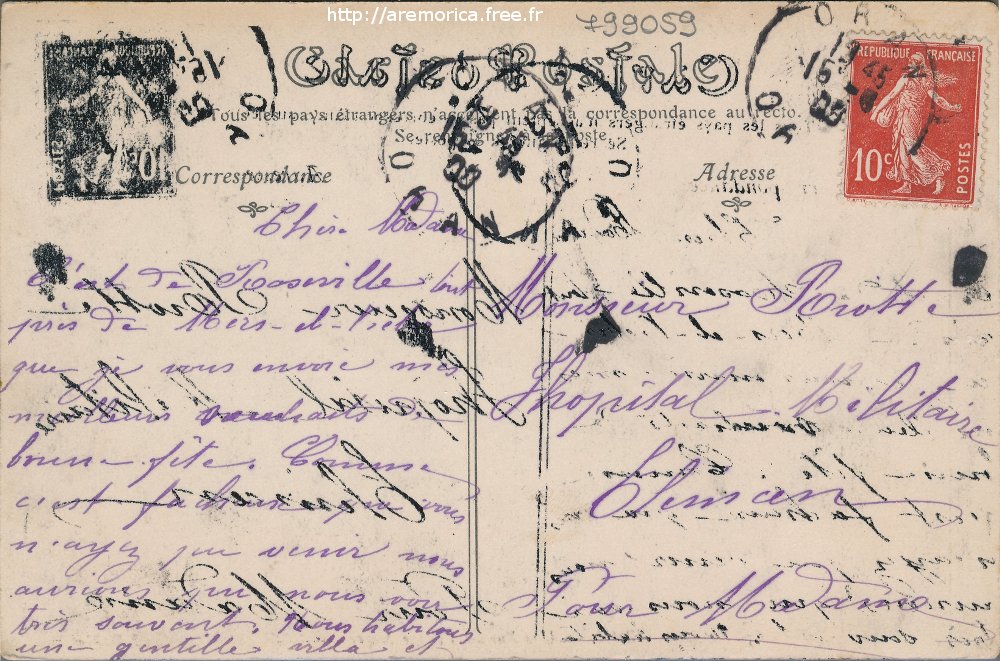 http://aremorica.free.fr
799059
Carte Postale
Tous les pays étrangers n'acceptent pas la correspondance au recto.
Se renseigner à la Poste
Correspondance
Adresse
RÉPUBLIQUE FRANÇAISE
10c
POSTES
ORAN
Chère Madame
C'est de Roseville tout
près de Mers-el-Kebir
que je vous envoie mes
meilleurs souhaits de
bonne fête. Comme
c'est fâcheux que vous
n'ayez pu venir nous
aurions
très souvent. Nous habitons
une gentille villa et
Monsieur Rotté
Hôpital Militaire
Tlemcen
Pour Madame